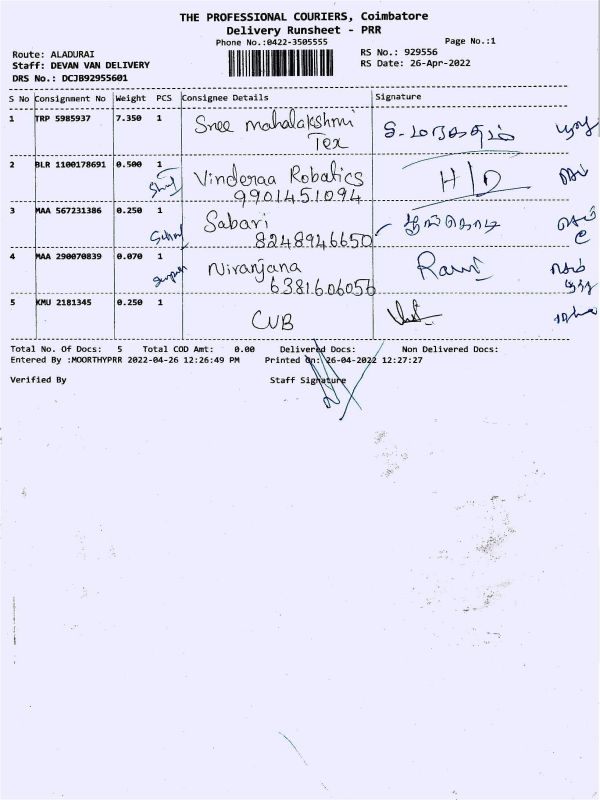 THE PROFESSIONAL COURIERS, Coimbatore
Delivery Runsheet - PRR
Phone No.:0422-3505555
Page No.:1
Route: ALADURAI
RS No.: 929556
Staff: DEVAN VAN DELIVERY
RS Date: 26-Apr-2022
DRS No.: DCJB92955601
S No Consignment No Weight PCS Consignee Details Signature
1 TRP 5985937 7.350 1 Sree mahalakshmi
Tex
2 BLR 1100178691 0.500 1 Vinderaa Robatics H/D
9901451094
3 MAA 567231386 0.250 1 Sabari
8248946650
4 MAA 290070839 0.070 1 Niranjana
6381606056
5 KMU 2181345 0.250 1 CUB
Total No. Of Docs: 5 Total COD Amt: 0.00 Delivered Docs: Non Delivered Docs:
Entered By :MOORTHYPRR 2022-04-26 12:26:49 PM Printed On: 26-04-2022 12:27:27
Verified By Staff Signature